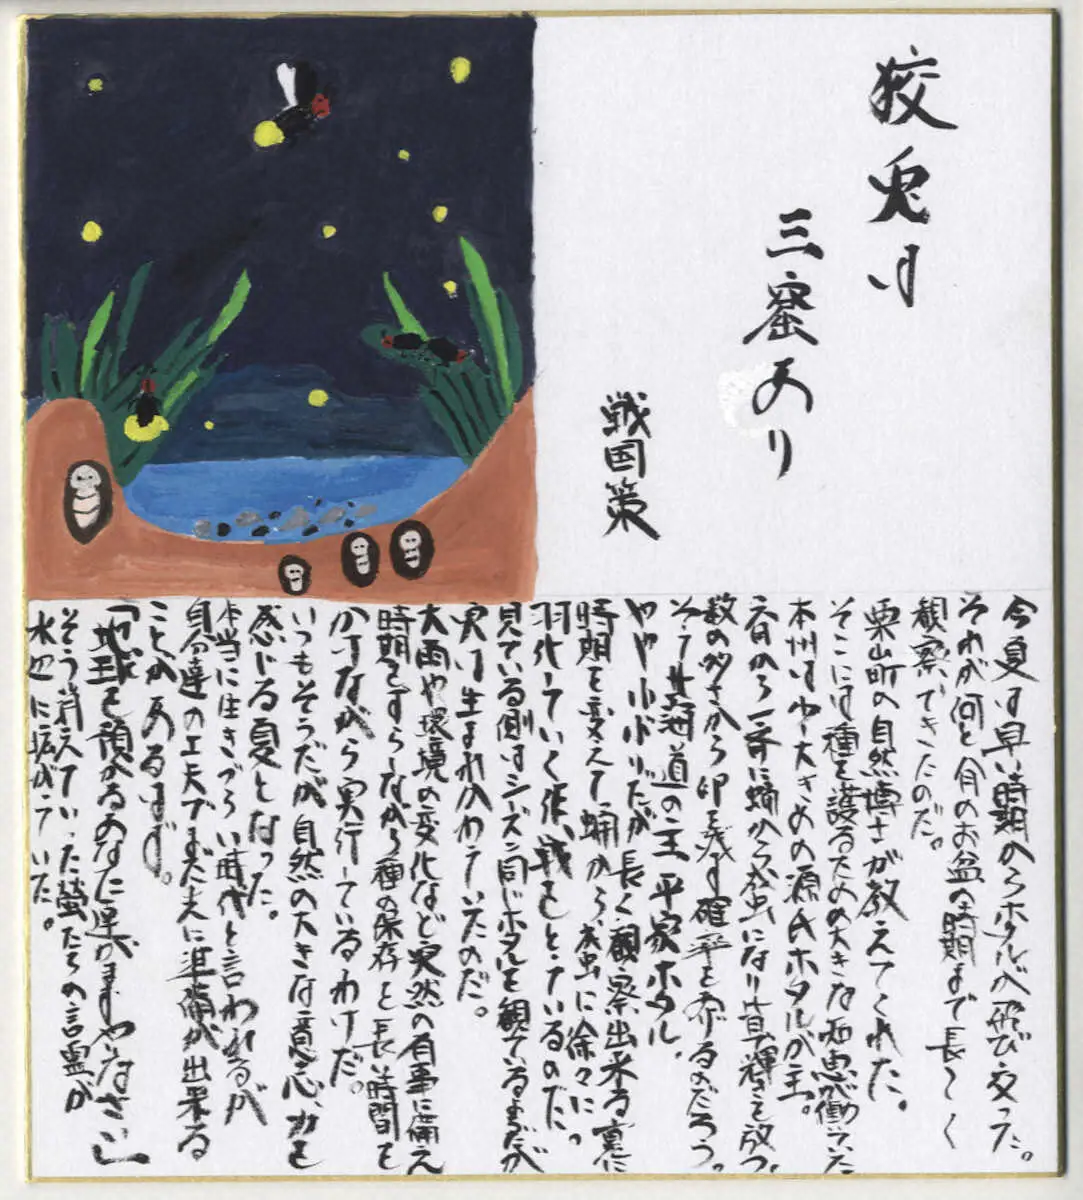 狡兎は
三窟あり
戦国策
今夏は早い時期からホタルが飛び交った。
それが何と今月のお盆の時期まで長〜く
観察できたのだ。
栗山町の自然博士が教えてくれた。
そこには種を護るための大きな知恵が働いていた
本州はやや大きめの源氏ホタルが主。
六月から一斉に蛹から成虫になり皆で輝きを放つ。
数の多さから卵を残す確率を上げるのだろう。
そして北海道の主平家ホタル。
やや小ぶりだが長く観察出来る裏に
時期を変えて蛹から成虫に徐々に
羽化していく作戦をとっているのだ。
見ている側はシーズン同じホタルを観ているようだが
実は生まれかわっていたのだ。
大雨や環境の変化など突然の有事に備え
時期をずらしながら種の保存を長い時間を
かけながら実行しているわけだ。
いつもそうだが自然の大きな意志、力を
感じる夏となった。
本当に生きづらい時代と言われるが
自分達の工夫でまだまだ準備が出来る
ことがあるはず。
「地球を預かるあなた達がまずやりなさい」
そう訴えていった螢たちの言霊が
水辺に拡がっていた。